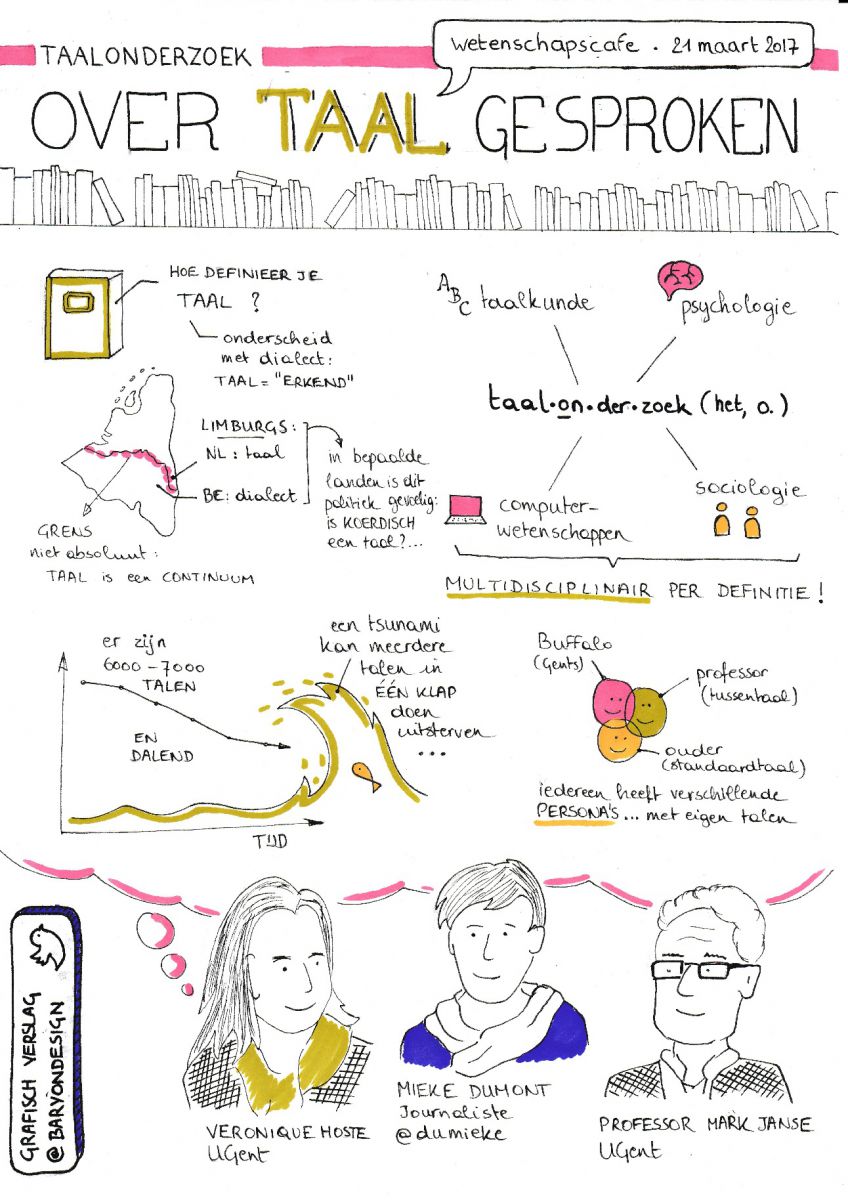 TAALONDERZOEK
wetenschapscafe . 21 maart 2017
OVER TAAL GESPROKEN
HOE DEFINIEER JE
TAAL ?
onderscheid
met dialect:
TAAL = "ERKEND"
LIMBURGS:
NL: taal
BE: dialect
in bepaalde
landen is dit
politiek gevoelig:
is KOERDISCH
een taal?...
GRENS
niet absoluut:
TAAL is een CONTINUUM
ABC taalkunde
psychologie
taal·on·der·zoek (het, o.)
computer-
wetenschappen
sociologie
MULTIDISCIPLINAIR PER DEFINITIE!
er zijn
6000-7000
TALEN
EN
DALEND
TIJD
een tsunami
kan meerdere
talen in
ÉÉN KLAP
doen
uitsterven
...
Buffalo
(Gents)
professor
(tussentaal)
ouder
(standaardtaal)
iedereen heeft verschillende
PERSONA'S ... met eigen talen
GRAFISCH VERSLAG
@BARYONDESIGN
VERONIQUE HOSTE
UGent
MIEKE DUMONT
Journaliste
@dumieke
PROFESSOR MARK JANSE
UGent